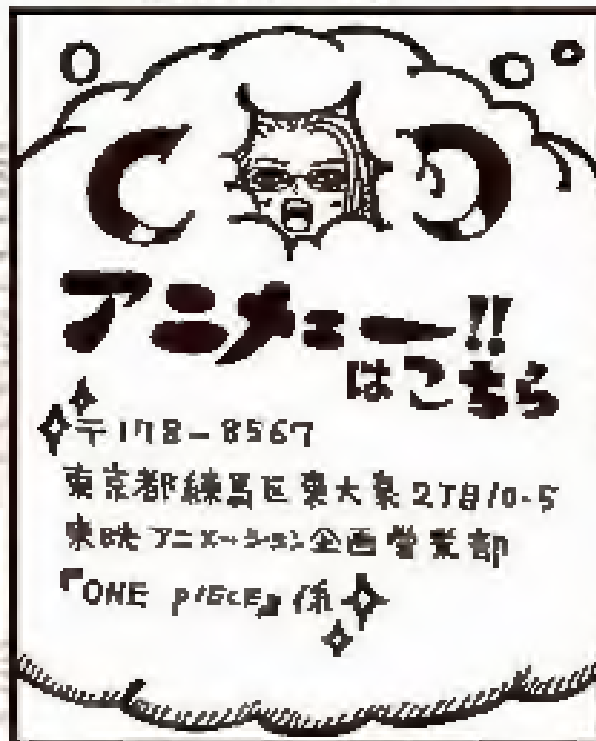 アニメェー!!
はこちら
〒178-8567
東京都練馬区東大泉2丁目10-5
東映アニメーション企画営業部
『ONE PIECE』係